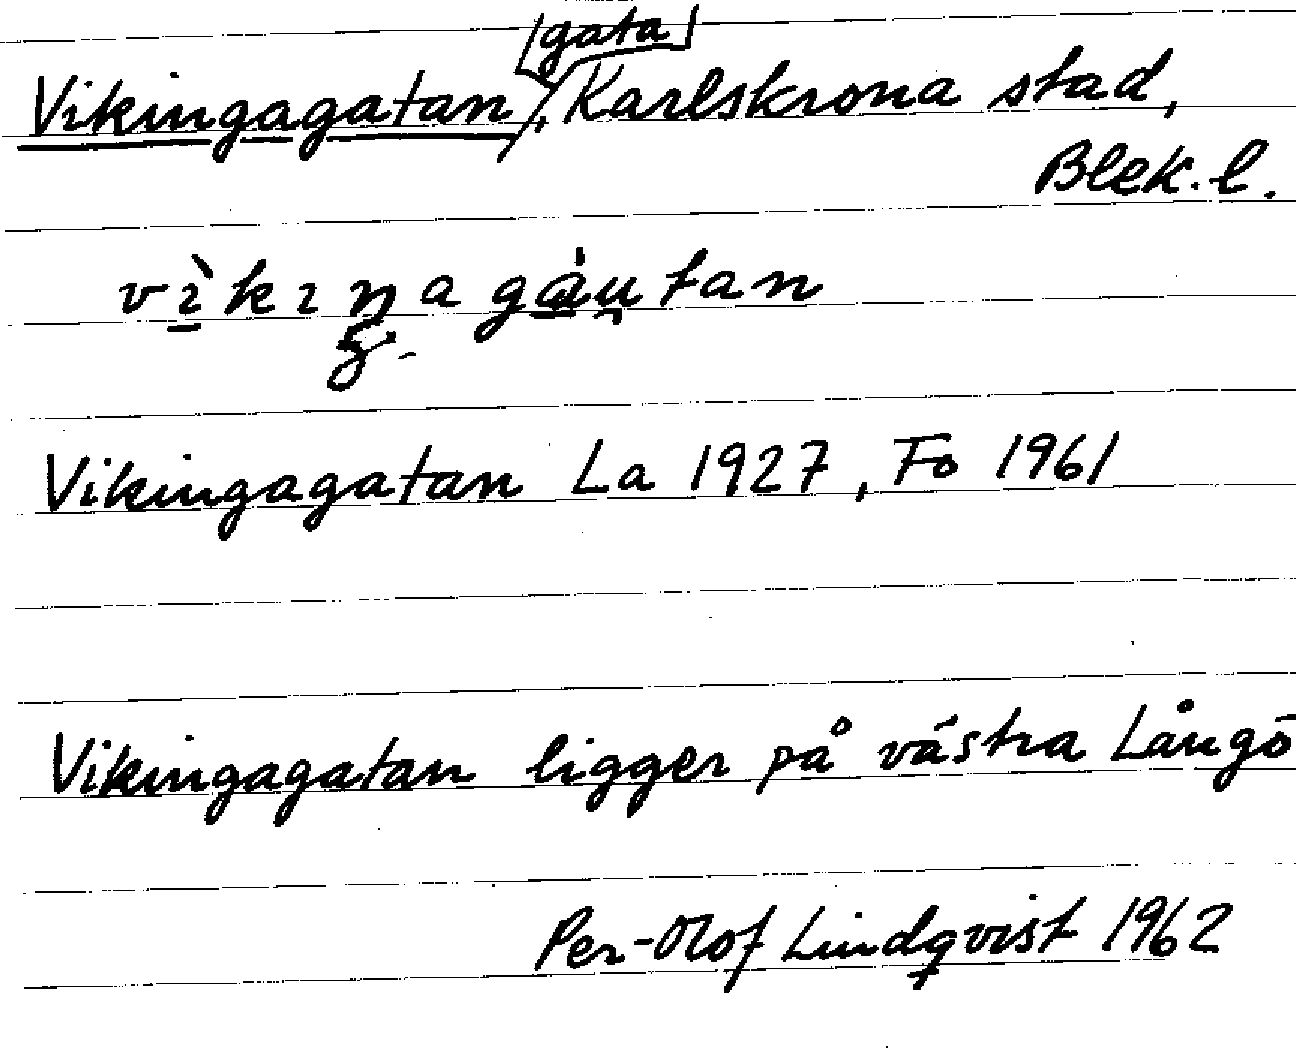 [gata]
Vikingagatan, Karlskrona stad,
Blek. l.
vìkıŋagàu̯tan
Vikingagatan La 1927, Fo 1961
Vikingagatan ligger på västra Långö
Per-Olof Lindqvist 1962